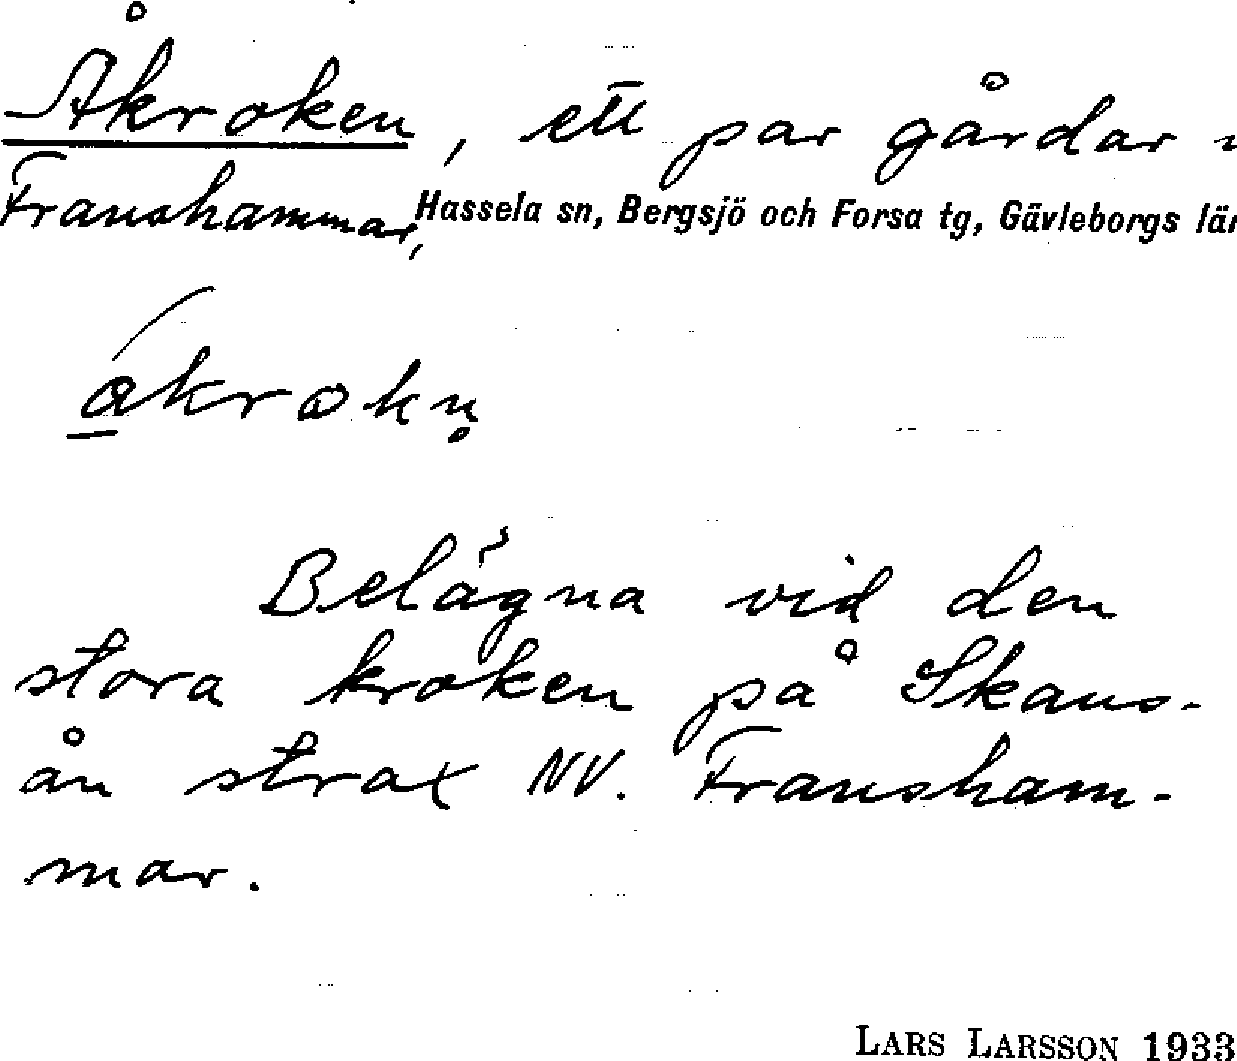 Åkroken, ett par gårdar i
Franshammar, Hassela sn, Bergsjö och Forsa tg, Gävleborgs län
Belägna vid den
stora kroken på Skans-
ån strax NV. Fransham-
mar.
LARS LARSSON 1933